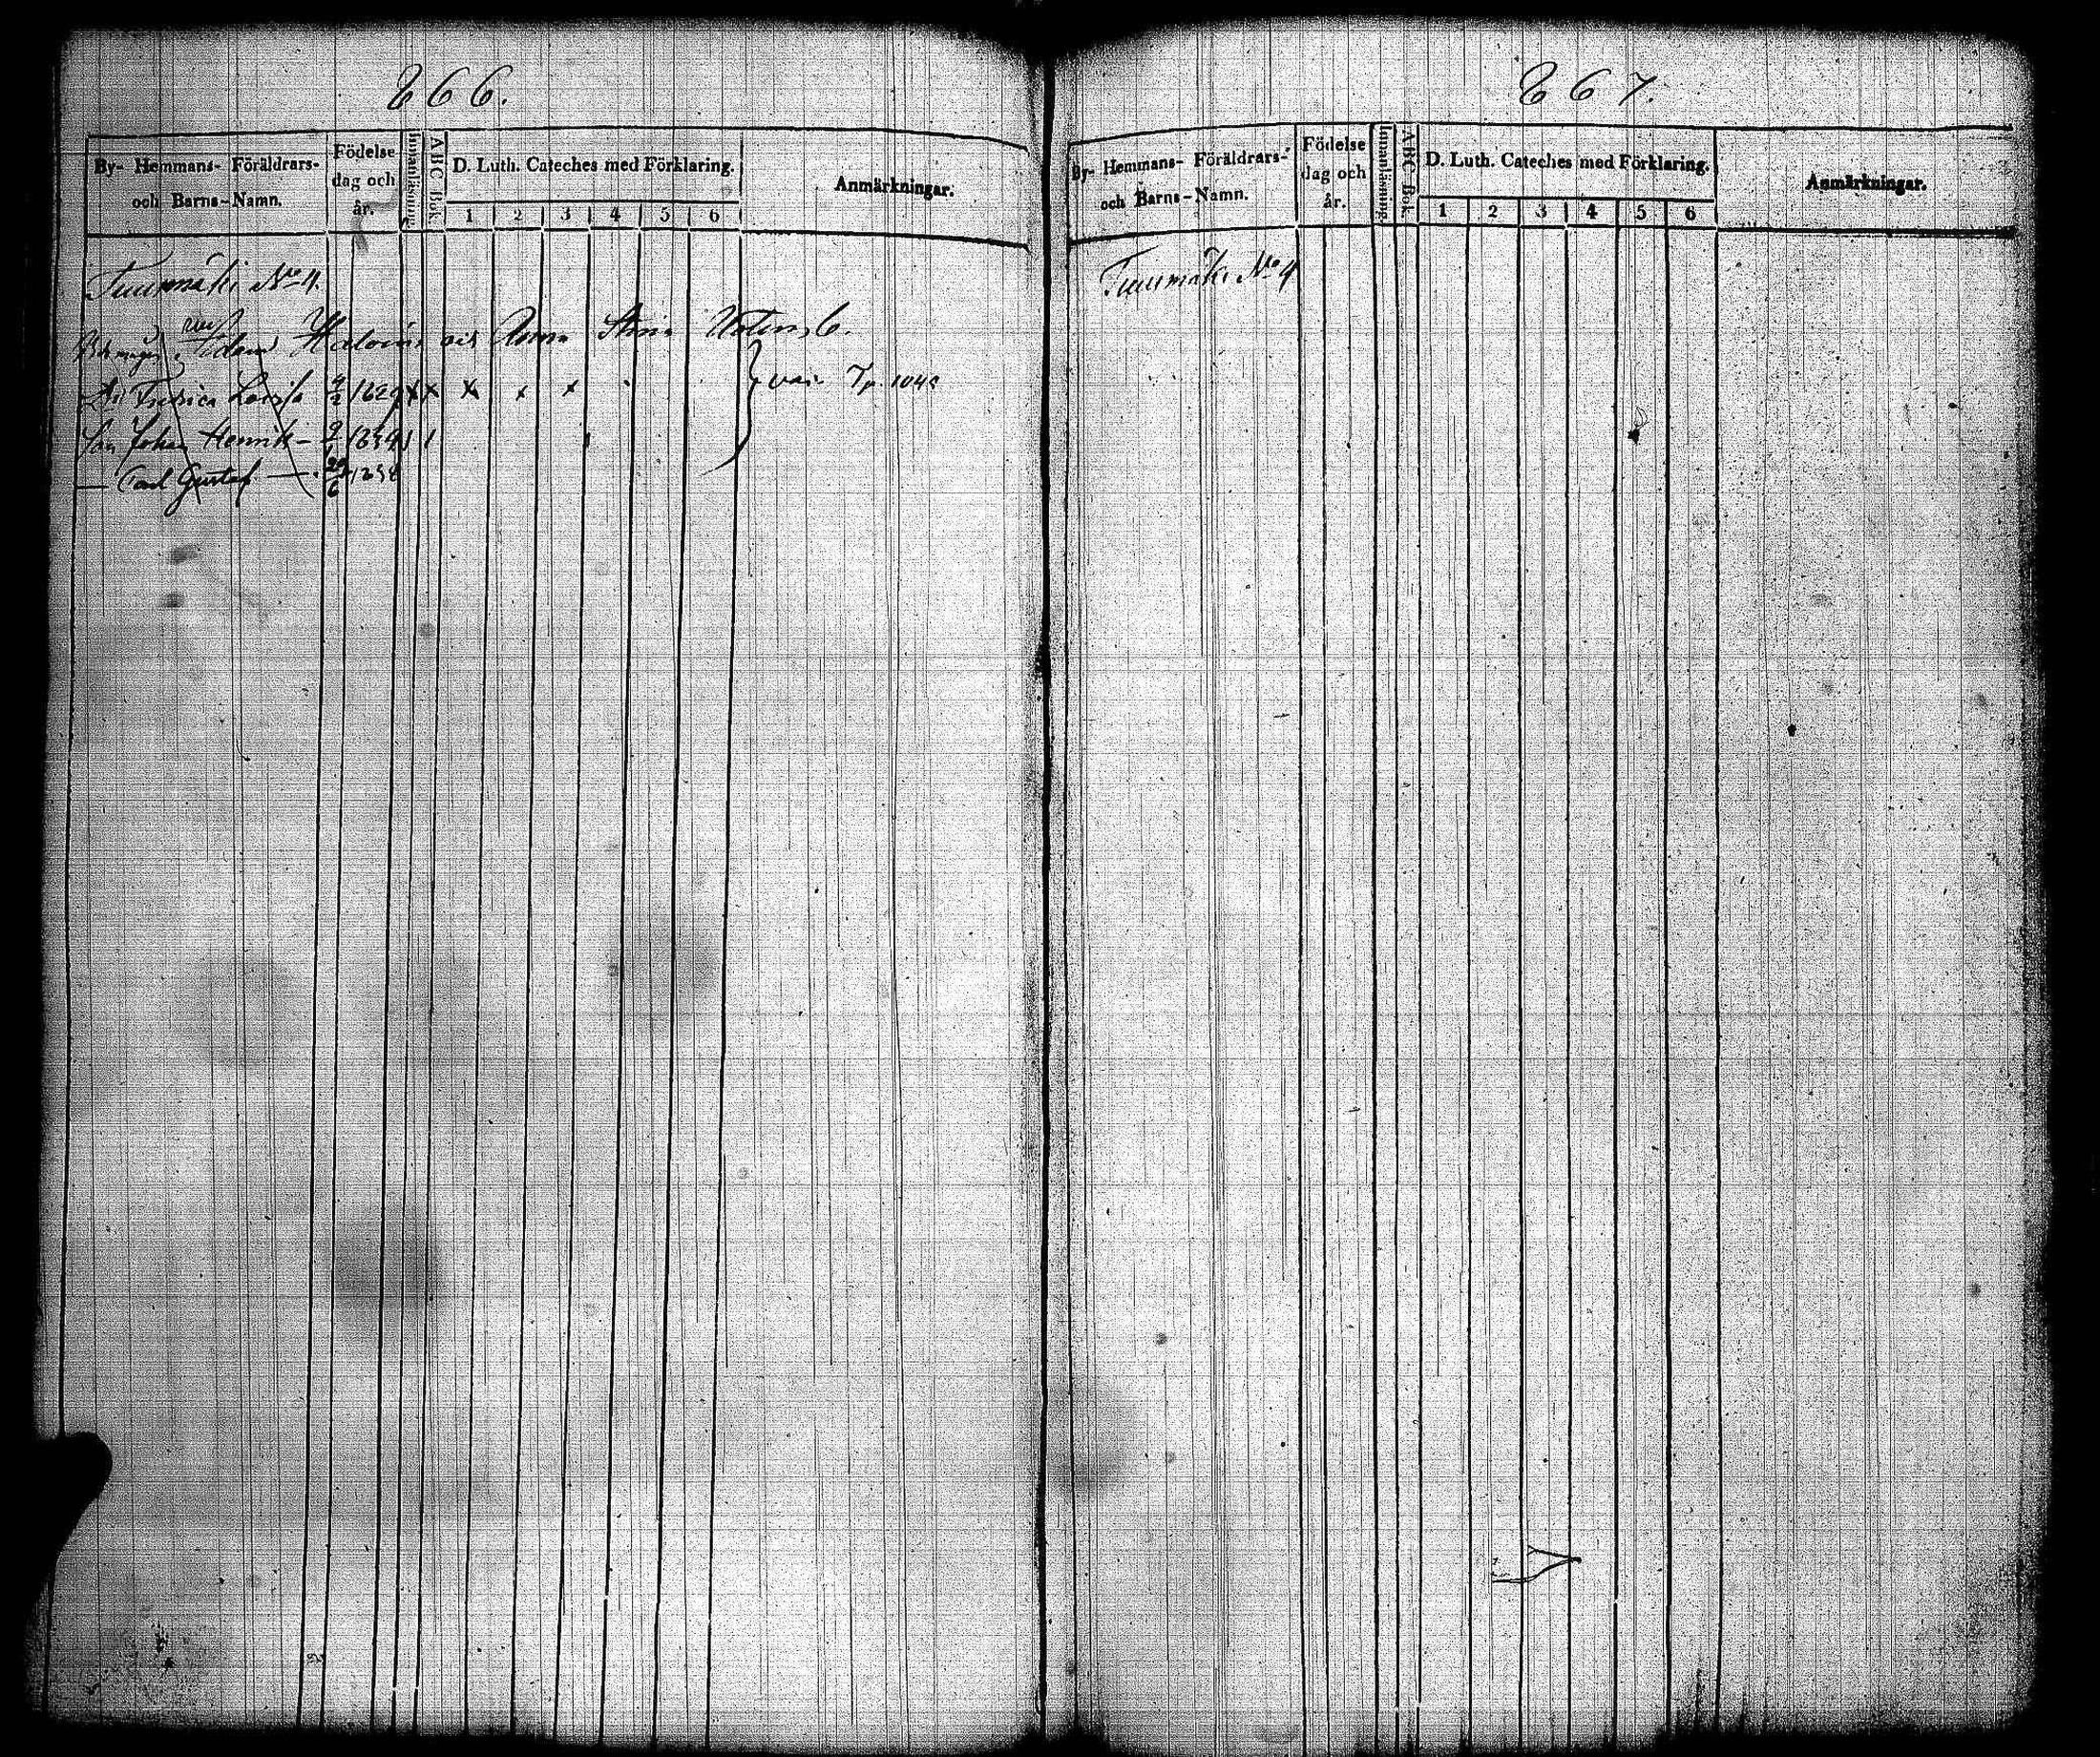 866.
By- Hemmans- Föräldrars-
och Barns-Namn.
Födelse
dag och
år.
Innanläsning.
ABC Bok.
D. Luth. Cateches med Förklaring.
1 2 3 4 5 6
Anmärkningar.
Tuurmäki No 4.
Adam Anna Stina
Fredrica Lovisa 1829 x x x x x
Son Johan Henrik
— Carl Gustaf —
867.
By- Hemmans- Föräldrars-
och Barns-Namn.
Födelse
dag och
år.
Innanläsning.
ABC Bok.
D. Luth. Cateches med Förklaring.
1 2 3 4 5 6
Anmärkningar.
Tuurmäki No 4